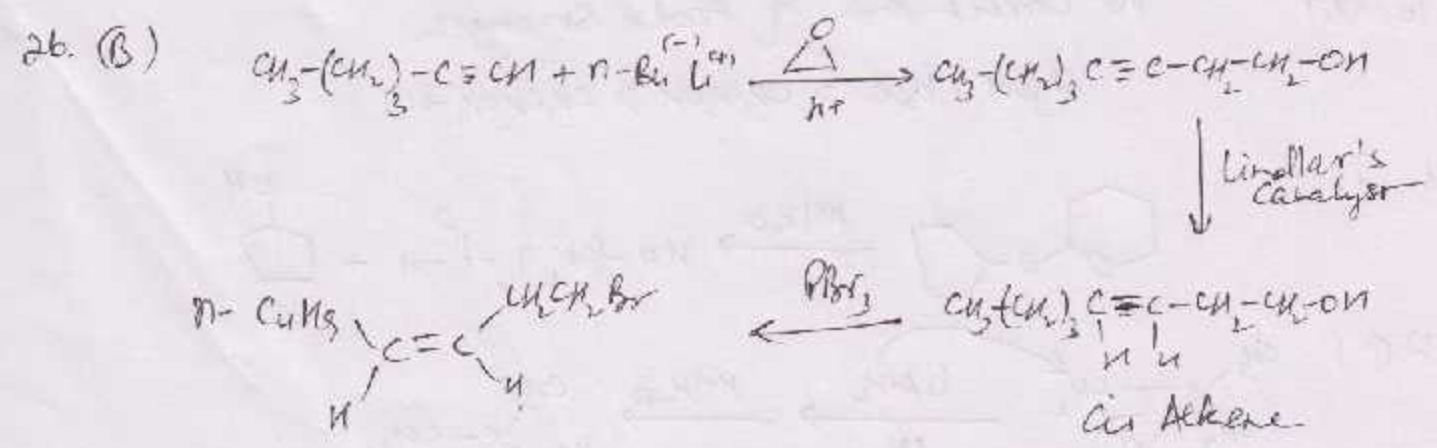 26. (B)
CH3-(CH2)3-C≡CH + n-Bu(-) Li(+) O H+ CH3-(CH2)3 C≡C-CH2-CH2-OH
Lindlar's
Catalyst
n-C4H9 CH2CH2Br C=C H H PBr3 CH3-(CH2)3 C=C-CH2-CH2-OH
H H
Cis Alkene